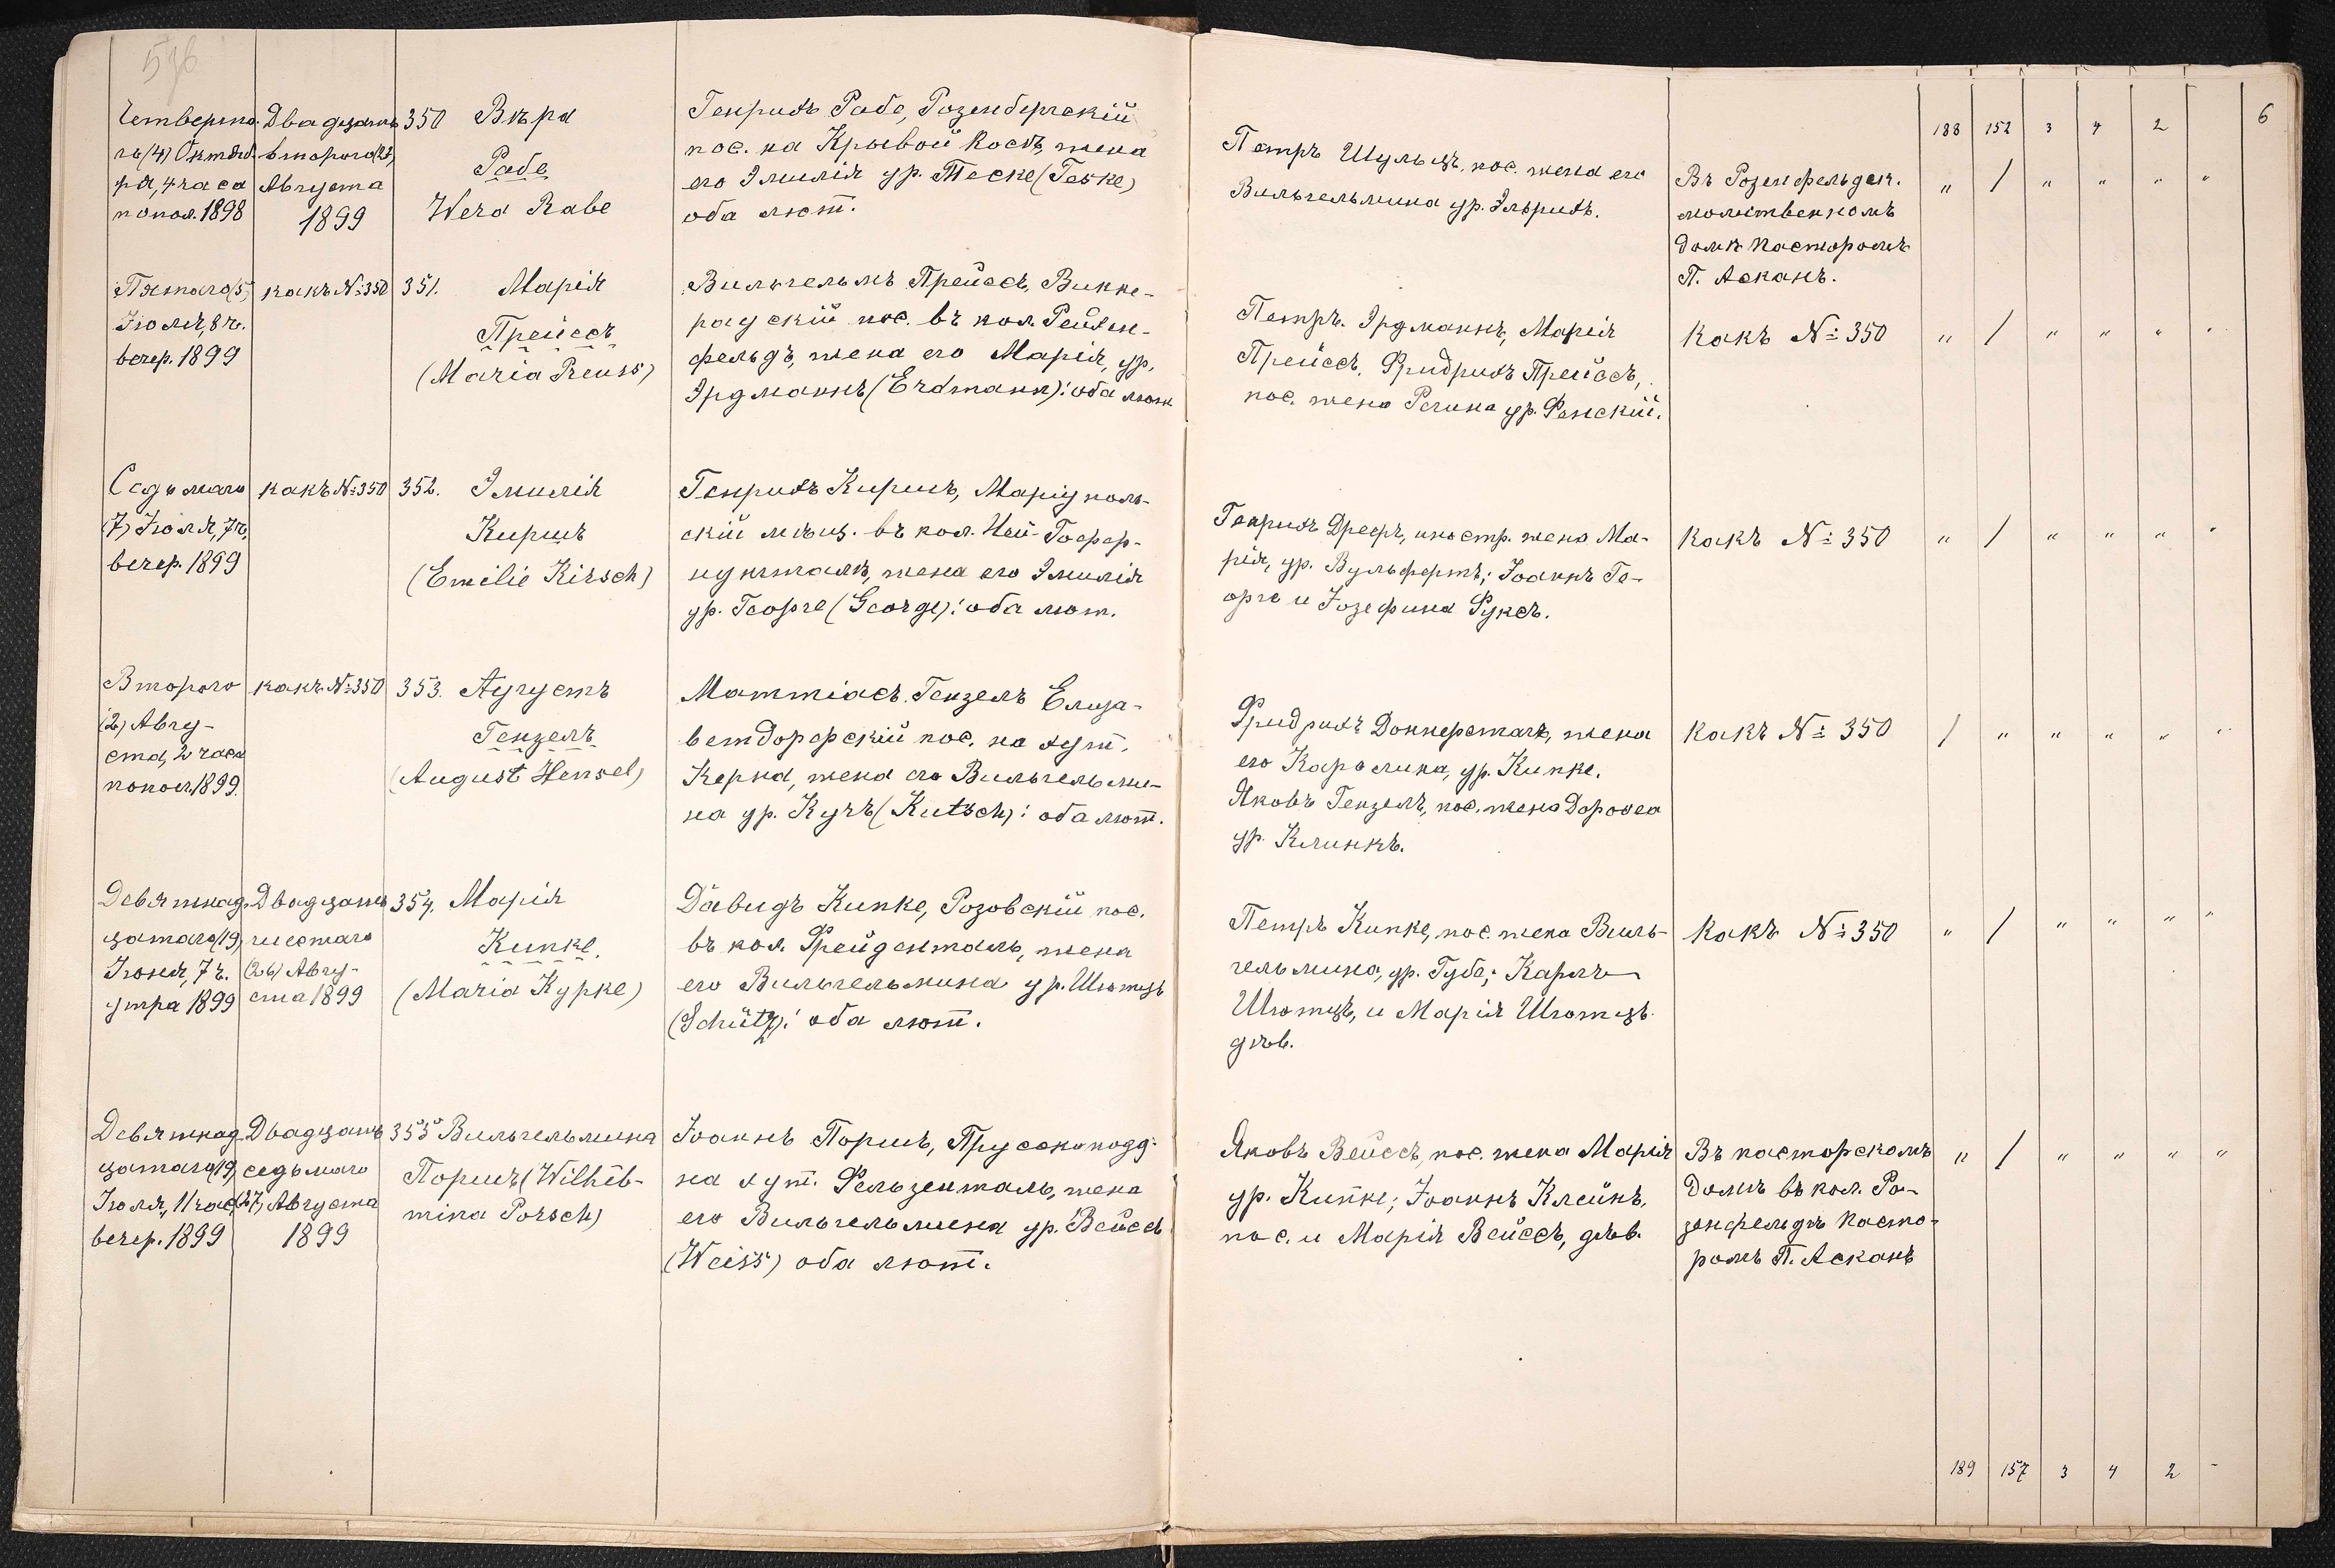 576
Четверта-
го (4) Октяб-
ря, 4 часа
попол. 1898
Двадцать
второго (22)
Августа
1899
350 Вѣра
Рабе
Wera Rabe
Генрихъ Рабе, Розенбергскій
пос. на Крывой Косѣ, жена
его Эмилія ур. Теске (Teske)
оба лют.
Петръ Шульцъ, пос. жена его
Вильгельмина ур. Эльрихъ.
Въ Розенфельден.
молитвенномъ
домѣ Пасторомъ
П. Асканъ.
188 152 3 4 2 6
„ / „ „ „ „
Пятаго (5)
Іюля, 8 ч.
вечер. 1899
какъ №350
351. Марія
Прейссъ
(Maria Preuss)
Вильгельмъ Прейссъ, Викке-
раускій пос. въ кол. Рейхен-
фельдъ, жена его Марія, ур.
Эрдманнъ (Erdmann): оба лют
Петръ Эрдманнъ, Марія
Прейссъ, Фридрихъ Прейссъ,
пос. жена Регина ур. Фенскій.
какъ № 350
„ / „ „ „ „
Седьмаго
(7) Іюля, 7 ч.
вечер. 1899
какъ №350
352. Эмилія
Киршъ
(Emilie Kirsch)
Генрихъ Киршъ, Маріуполь-
скій мѣщ. въ кол. Ней-Гоффр-
нунгталь, жена его Эмилія
ур. Георге (George): оба лют.
Генрихъ Дреєръ, иностр. жена Ма-
рія, ур. Вульфертъ; Іоаннъ Ге-
орге и Іозефина Фуксъ.
какъ № 350
„ / „ „ „ „
Второго
(2) Авгу-
ста, 2 часа
попол. 1899.
какъ №350
353. Аугустъ
Гензель
(August Hensel)
Маттіасъ Гензель Елиза-
ветдорфскій пос. на хут.
Керна, жена его Вильгельми-
на ур. Кучъ (Kutsch): оба лют.
Фридрихъ Доннерстагъ, жена
его Каролина, ур. Кипке.
Яковъ Гензель, пос. жена Доротеа
ур. Клинкъ.
какъ № 350
/ „ „ „ „ „
Девятнад-
цатаго (19)
Іюня, 7 ч.
утра 1899
Двадцать
шестаго
(26) Авгу-
ста 1899
354. Марія
Кипке.
(Maria Kypke)
Давидъ Кипке, Розовскій пос.
въ кол. Фрейденталь, жена
его Вильгельмина ур. Шютцъ
(Schütz): оба лют.
Петръ Кипке, пос. жена Виль-
гельмина, ур. Губа; Карлъ
Шютцъ, и Марія Шютцъ
дѣв.
какъ № 350
„ / „ „ „ „
Девятнад-
цатаго (19)
Іюля, 11 час.
вечер. 1899
Двадцать
седьмаго
(27) Августа
1899
355 Вильгельмина
Поршъ (Wilhel-
mina Porsch)
Іоаннъ Поршъ, Прусскоподд.
на хут. Фельзенталь, жена
его Вильгельмина ур. Вейссъ
(Weiss) оба лют.
Яковъ Вейссъ, пос. жена Марія
ур. Кипке; Іоаннъ Клейнъ,
пос. и Марія Вейссъ, дѣв.
Въ пасторскомъ
домѣ въ кол. Ро-
зенфельдъ Пасто-
ромъ П. Асканъ
„ / „ „ „ „
189 157 3 4 2 -